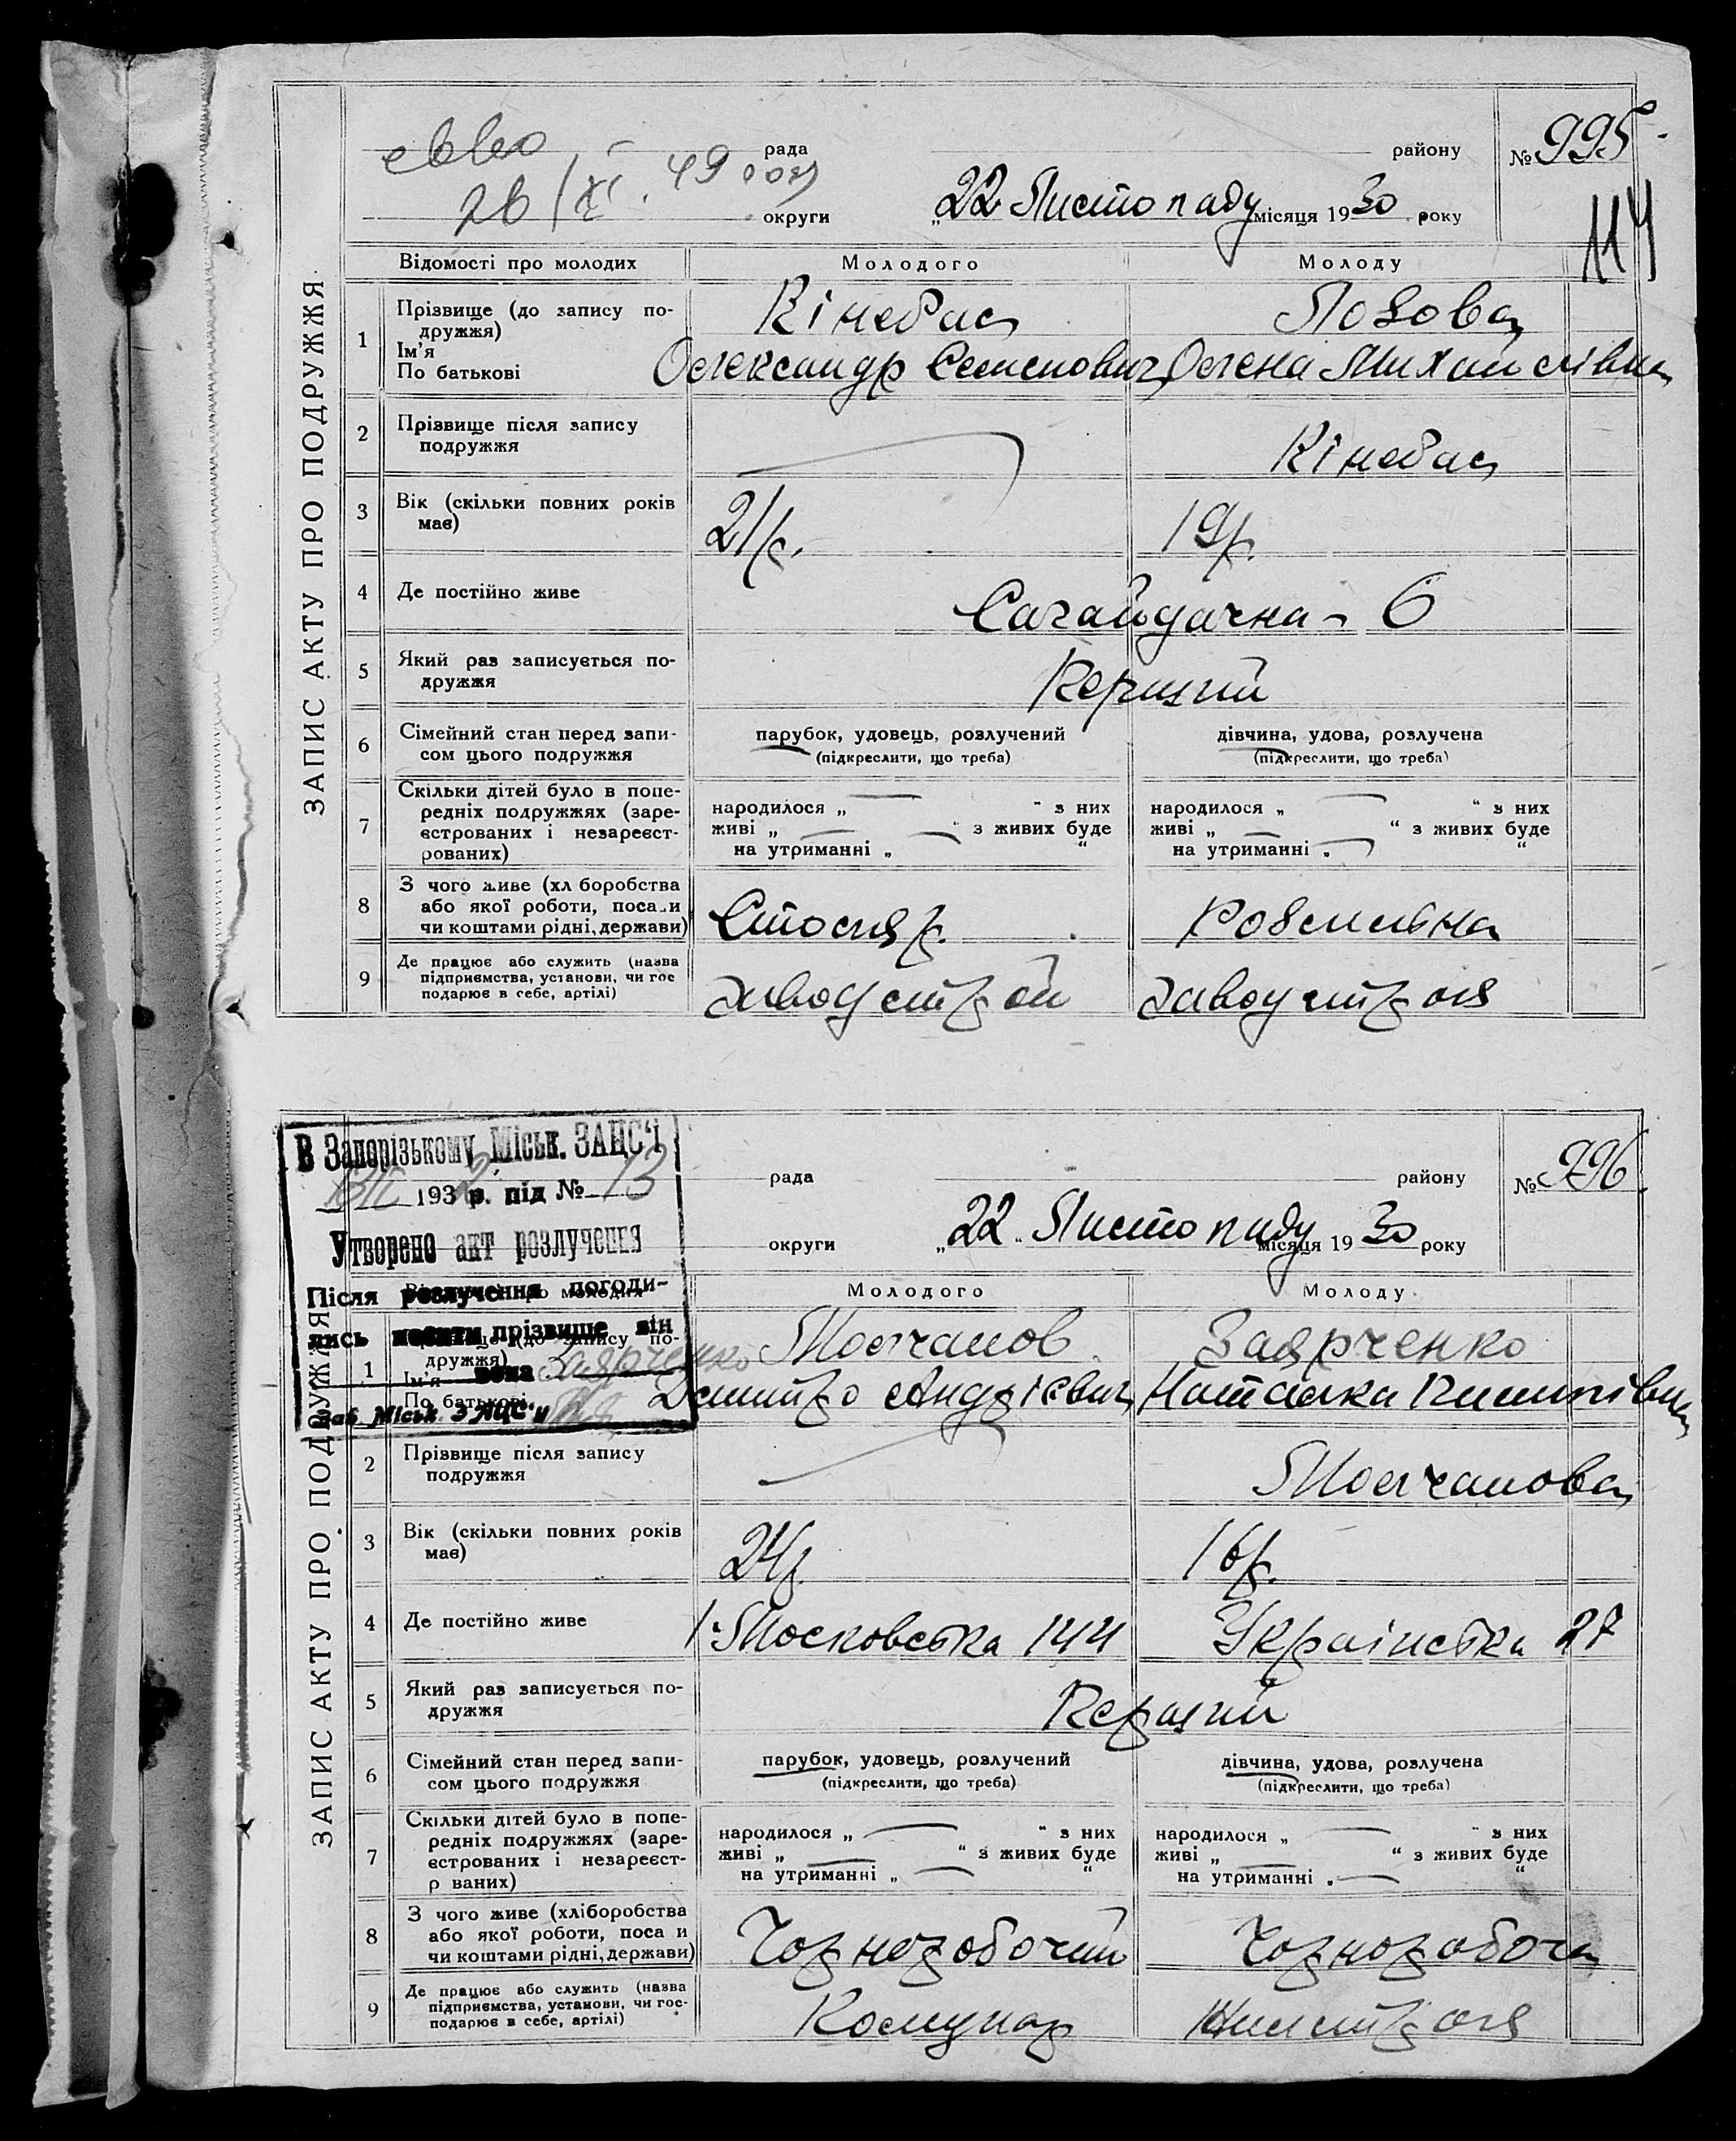 ЗАПИС АКТУ ПРО ПОДРУЖЖЯ
рада району № 995
26/XI. 49
округи „22 Листопаду місяця 1930 року
114
Відомості про молодих Молодого Молоду
1 Прізвище (до запису по-
дружжя)
Ім'я
По батькові
Кінебас Лозова
Олександр Семенович Олена Михайлівна
2 Прізвище після запису
подружжя
Кінебас
3 Вік (скільки повних років
має)
21 р. 19 р.
4 Де постійно живе
Сагайдачна - 6
5 Який раз записується по-
дружжя
Перший
6 Сімейний стан перед запи-
сом цього подружжя
парубок, удовець, розлучений дівчина, удова, розлучена
(підкреслити, що треба) (підкреслити, що треба)
7 Скільки дітей було в попе-
редніх подружжях (заре-
єстрованих і незареєст-
рованих)
народилося „ “ з них народилося „ “ з них
живі „ “ з живих буде живі „ “ з живих буде
на утриманні „ “ на утриманні „ “
8 З чого живе (хл боробства
або якої роботи, поса и
чи коштами рідні, держави)
Столяр. Робітна
9 Де працює або служить (назва
підприємства, установи, чи гос
подарює в себе, артілі)
заводстрой
ЗАПИС АКТУ ПРО ПОДРУЖЖЯ
В Запорізькому Міськ. ЗАНС'і
193 2 р. під № 13
Утворено акт розлучення
Після розлучення погоди-
лись носити прізвище він
вона Заярченко
Заб Міськ ЗАЦС'у
рада району № 996
округи „22 Листопаду місяця 1930 року
Молодого Молоду
1 дружжя)
Ім'я
По батькові
Молчанов Заярченко
Дмитро Андрієвич Наталка Пилипівна
2 Прізвище після запису
подружжя
Молчанова
3 Вік (скільки повних років
має)
24 р. 16 р.
4 Де постійно живе
Московська 144 Українська 27
5 Який раз записується по-
дружжя
Перший
6 Сімейний стан перед запи-
сом цього подружжя
парубок, удовець, розлучений дівчина, удова, розлучена
(підкреслити, що треба) (підкреслити, що треба)
7 Скільки дітей було в попе-
редніх подружжях (заре-
єстрованих і незареєст-
р ваних)
народилося „ “ з них народилося „ “ з них
живі „ “ з живих буде живі „ “ з живих буде
на утриманні „ “ на утриманні „ “
8 З чого живе (хліборобства
або якої роботи, поса и
чи коштами рідні, держави)
Чорноробочий Чорноробоча
9 Де працює або служить (назва
підприємства, установи, чи гос-
подарює в себе, артілі)
Комунар